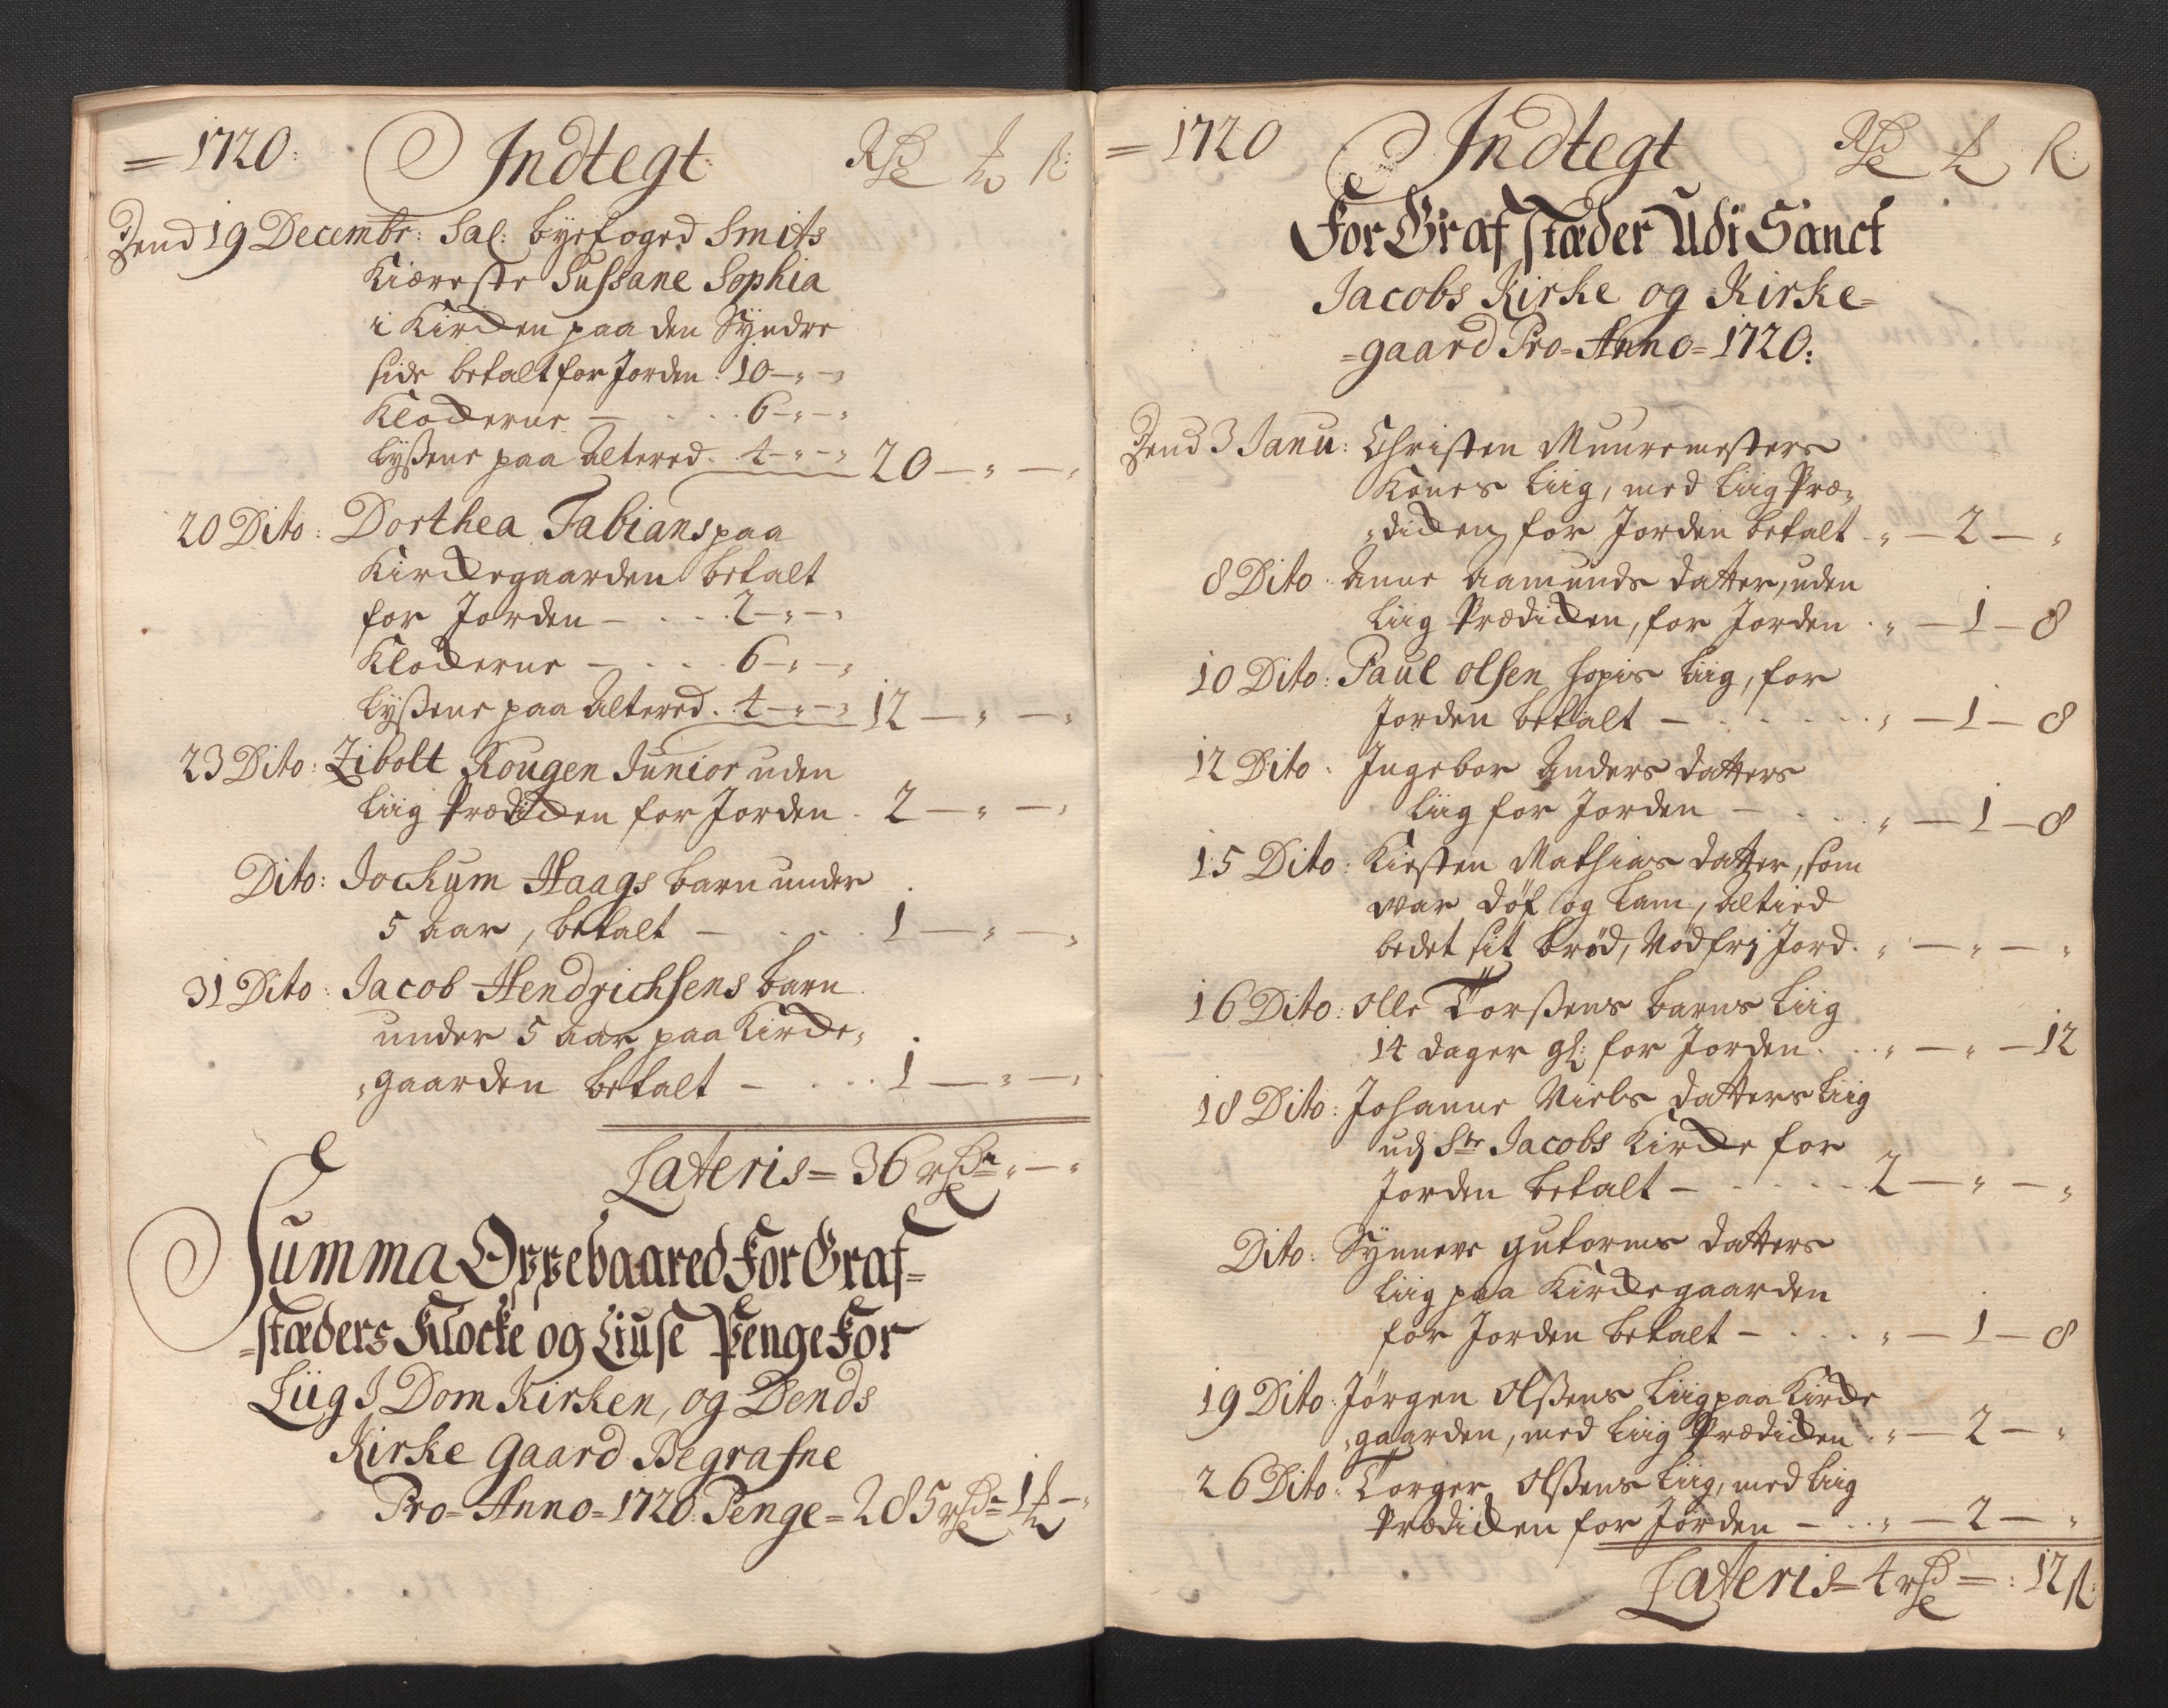 =1720: Indtegt: Rdr ₰ ß:
Dend 19 Decembr: Sal: byefoged Smits
Kiæreste Sussane Sophia
i Kircken paa den Syndre
side betalt for Jorden. 10-"-"
Klockerne - . . . 6-"-"
Lyßene paa Altered. 4-"-" 20-"-"
20 Dito: Dorthea Fabians paa
Kirckegaarden betalt
for Jorden - . . . 2-"-"
Klockerne - . . . 6-"-"
Lyßene paa Altered. 4-"-" 12-"-"
23 Dito: Zibolt Kougen Junior uden
Liig Prædicken for Jorden. 2-"-"
Dito: Jochum Haags barn under
5 aar, betalt - . . . 1-"-"
31 Dito: Jacob Hendrichsens barn
under 5 aar paa Kircke"
"gaarden betalt - . . . 1-"-"
Lateris = 36 rdr "-"
Summa Oppebaared For Graf=
=stæders Klocke og Liuse Penge For
Liig I Dom Kirken, og Dends
Kirke Gaard Begrafne
Pro=Anno=1720. Penge=285 rdr 1 -"
=1720 Indtegt Rdr ₰ ß:
For Graf stæder Udi Sanct
Jacobs Kirke og Kirke=
=gaard Pro=Anno=1720:
Dend 3 Janu: Christen Muuremesters
Kones Liig, med Liig Præ"
"dicken for Jorden betalt. "-2-"
8 Dito: Anne Aamunds datter, uden
Liig Prædicken, for Jorden. "-1-8
10 Dito: Paul Olsen Hopis Liig, for
Jorden betalt - . . . "-1-8
12 Dito: Ingebor Anders datters
Liig for Jorden - . . . "-1-8
15 Dito: Kiesten Mathias datter, som
war døf og Lam, altied
bedet sit brød, Nød frj Jord. "-"-"
16 Dito: Olle Torßens barns Liig
14 dager gl: for Jorden . . . "-"-12
18 Dito: Johanne Niels datters Liig
udj Str Jacobs Kircke for
Jorden betalt - . . . 2-"-"
Dito: Synneve Gutorms datters
Liig paa Kirckegaarden
for Jorden betalt - . . . "-1-8
19 Dito: Jörgen Olßens Liig paa Kircke
"gaarden, med Liig Prædicken. "-2-"
26 Dito: Torger Olßens Liig, med Liig
Prædicken for Jorden - . . "-2-"
Lateris=4 rdr =: 12 ß: